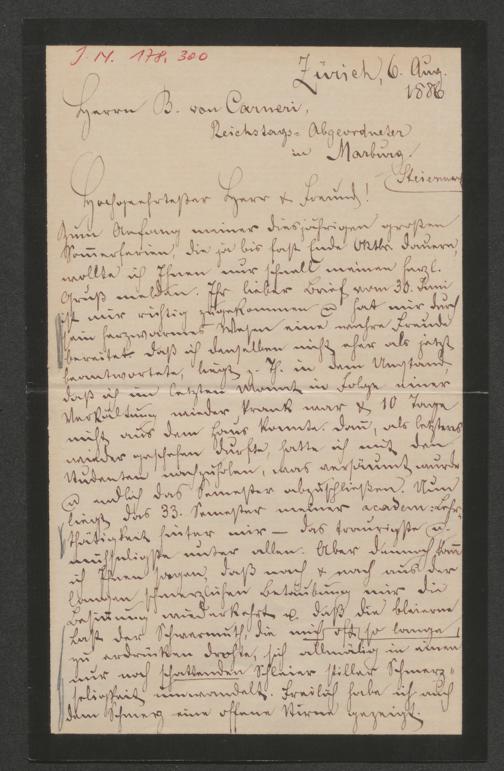 J. N. 178.300
Zürich, 6. Aug.
1886
Herrn B. von Carneri,
Reichstags-Abgeordneter
in Marburg.
Steiermark
Hochgeehrtester Herr & Freund!
Zum Anfang meiner diesjährigen großen
Sommerferien, die ja bis fast Ende Oktbr. dauern,
wollte ich Ihnen nur schnell meinen herzl.
Gruß melden. Ihr lieber Brief vom 30. Juni
ist mir richtig zugekommen & hat mir durch
sein herzwarmes Wesen eine wahre Freude
bereitet. Daß ich denselben nicht eher als jetzt
beantwortete, liegt z. Th. in dem Umstand,
daß ich im letzten Monat in Folge einer
Verkältung wieder krank war & 10 Tage
nicht aus dem Haus konnte. Dann, als letzteres
wieder geschehen durfte, hatte ich mit den
Studenten nachzuholen, was versäumt wurde
& endlich das Semester abzuschließen. Nun
liegt das 33. Semester meiner academ. Lehr-
thätigkeit hinter mir — das traurigste &
mühseligste unter allen. Aber dennoch kann
ich Ihnen sagen, daß nach & nach aus der
langen schmerzlichen Betäubung mir die
Besinnung wiederkehrt & daß die bleierne
Last der Schwermuth, die mich oft so lange
zu erdrücken drohte, sich allmälig in einen
nur noch schattenden Schleier stiller Schmerz-
seligkeit umwandelt. Freilich habe ich auch
dem Schmerz eine offene Stirne gezeigt